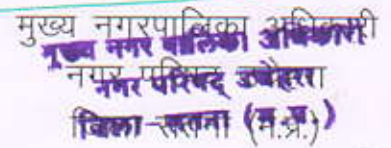 मुख्य नगरपालिका अधिकारी
मुख्य नगर पालिका अधिकारी
नगर परिषद् उचेहरा
नगर परिषद् उचेहरा
जिला सतना (म.प्र.)
जिला-सतना (म.प्र.)